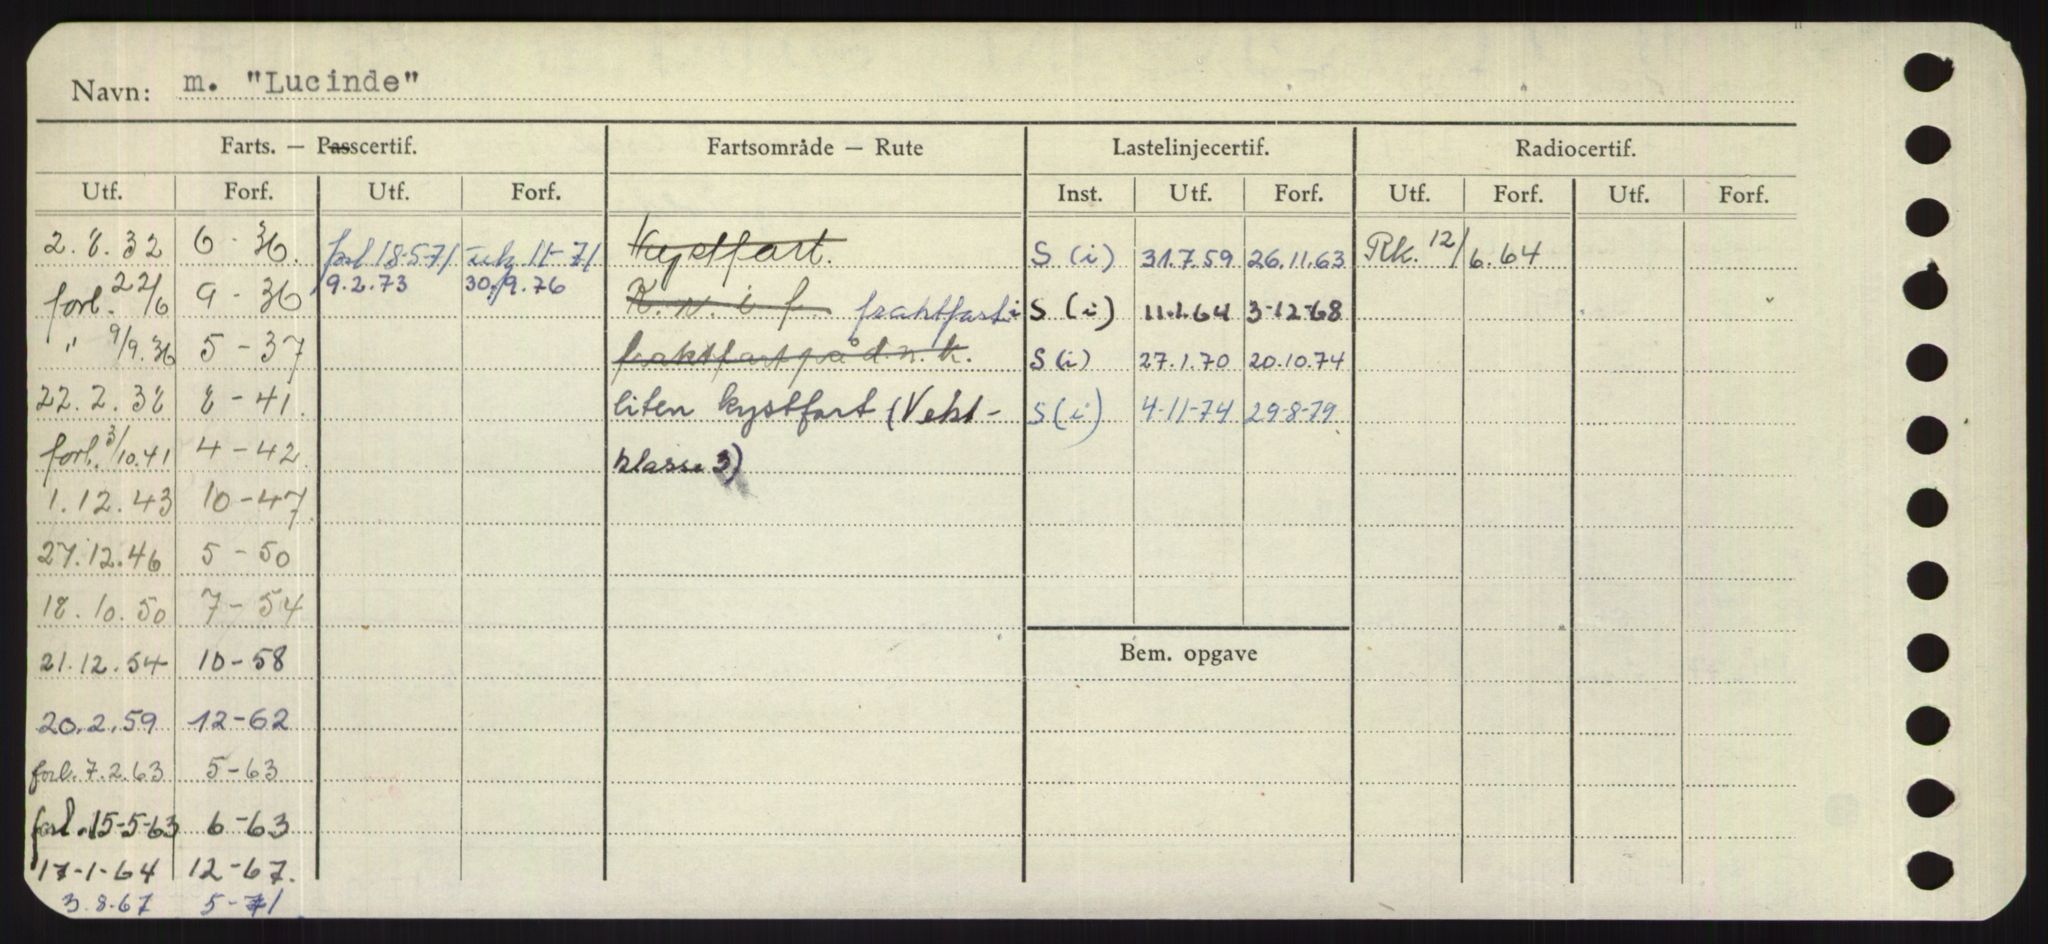 Navn: m. "Lucinde"
Farts. — Passcertif. Fartsområde — Rute Lastelinjecertif. Radiocertif.
Utf. Forf. Utf. Forf. Inst. Utf. Forf. Utf. Forf. Utf. Forf.
2.8.32 6-36. forl 18-5-71 11-71 Kystfart. S (i) 31.7.59 26.11.63 Rk. 12/6.64
forl. 22/6 9-36 9.2.73 30/9.76 K.n.i f. fraktfart i S (i) 11.1.64 3-12-68
" 9/9.36 5-37 fraktfart på d.n.k. S (i) 27.1.70 20.10.74
22.2.38 8-41. liten kystfart (Vekt- S (i) 4-11-74 29-8-79
forl. 3/10.41 4-42. klasse 3)
1.12.43 10-47.
27.12.46 5-50
18.10.50 7-54
21.12.54 10-58
Bem. opgave
20.2.59 12-62
forl. 7.2.63 5-63
forl. 15-5-63 6-63
17-1-64 12-67.
3.8.67 5-71